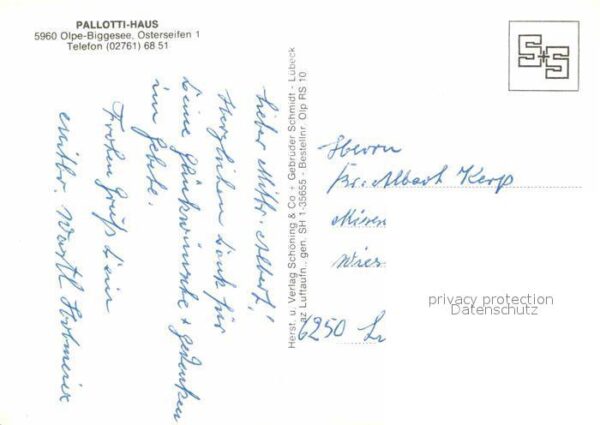 PALLOTTI-HAUS
5960 Olpe-Biggesee, Osterseifen 1
Telefon (02761) 68 51
S+S
Lieber Mitbr. Albert!
Herzlichen Dank für
Deine Glückwünsche + gedenken
im Gebete.
Frohen Gruß Dein
Mitbr.
Herst. u. Verlag Schöning & Co + Gebrüder Schmidt - Lübeck
az Luftaufn., gen. SH 1-35655 - Bestellnr. Olp RS 10
Herrn
Br. Albert Kerp
Missen
Wies
6250 L
privacy protection
Datenschutz